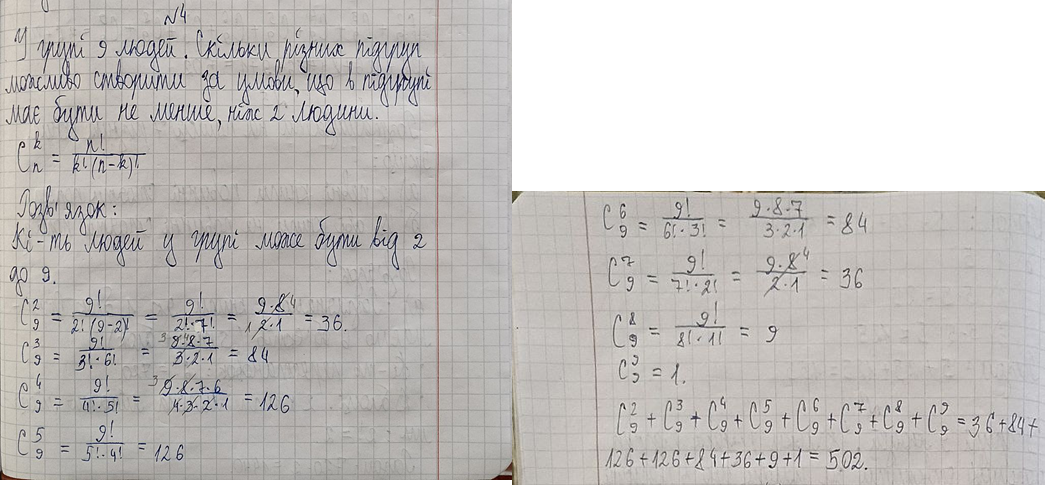 №4
У групі 9 людей. Скільки різних підгруп
можливо створити за умови, що в підгрупі
має бути не менше, ніж 2 людини.
C_n^k = n! / k!(n-k)!
Розв'язок:
Кі-ть людей у групі може бути від 2
до 9.
C_9^2 = 9! / 2!(9-2)! = 9! / 2!·7! = 9·8 / 2·1 = 36.
C_9^3 = 9! / 3!·6! = 9·8·7 / 3·2·1 = 84
C_9^4 = 9! / 4!·5! = 9·8·7·6 / 4·3·2·1 = 126
C_9^5 = 9! / 5!·4! = 126
C_9^6 = 9! / 6!·3! = 9·8·7 / 3·2·1 = 84
C_9^7 = 9! / 7!·2! = 9·8 / 2·1 = 36
C_9^8 = 9! / 8!·1! = 9
C_9^9 = 1.
C_9^2 + C_9^3 + C_9^4 + C_9^5 + C_9^6 + C_9^7 + C_9^8 + C_9^9 = 36+84+
126+126+84+36+9+1 = 502.